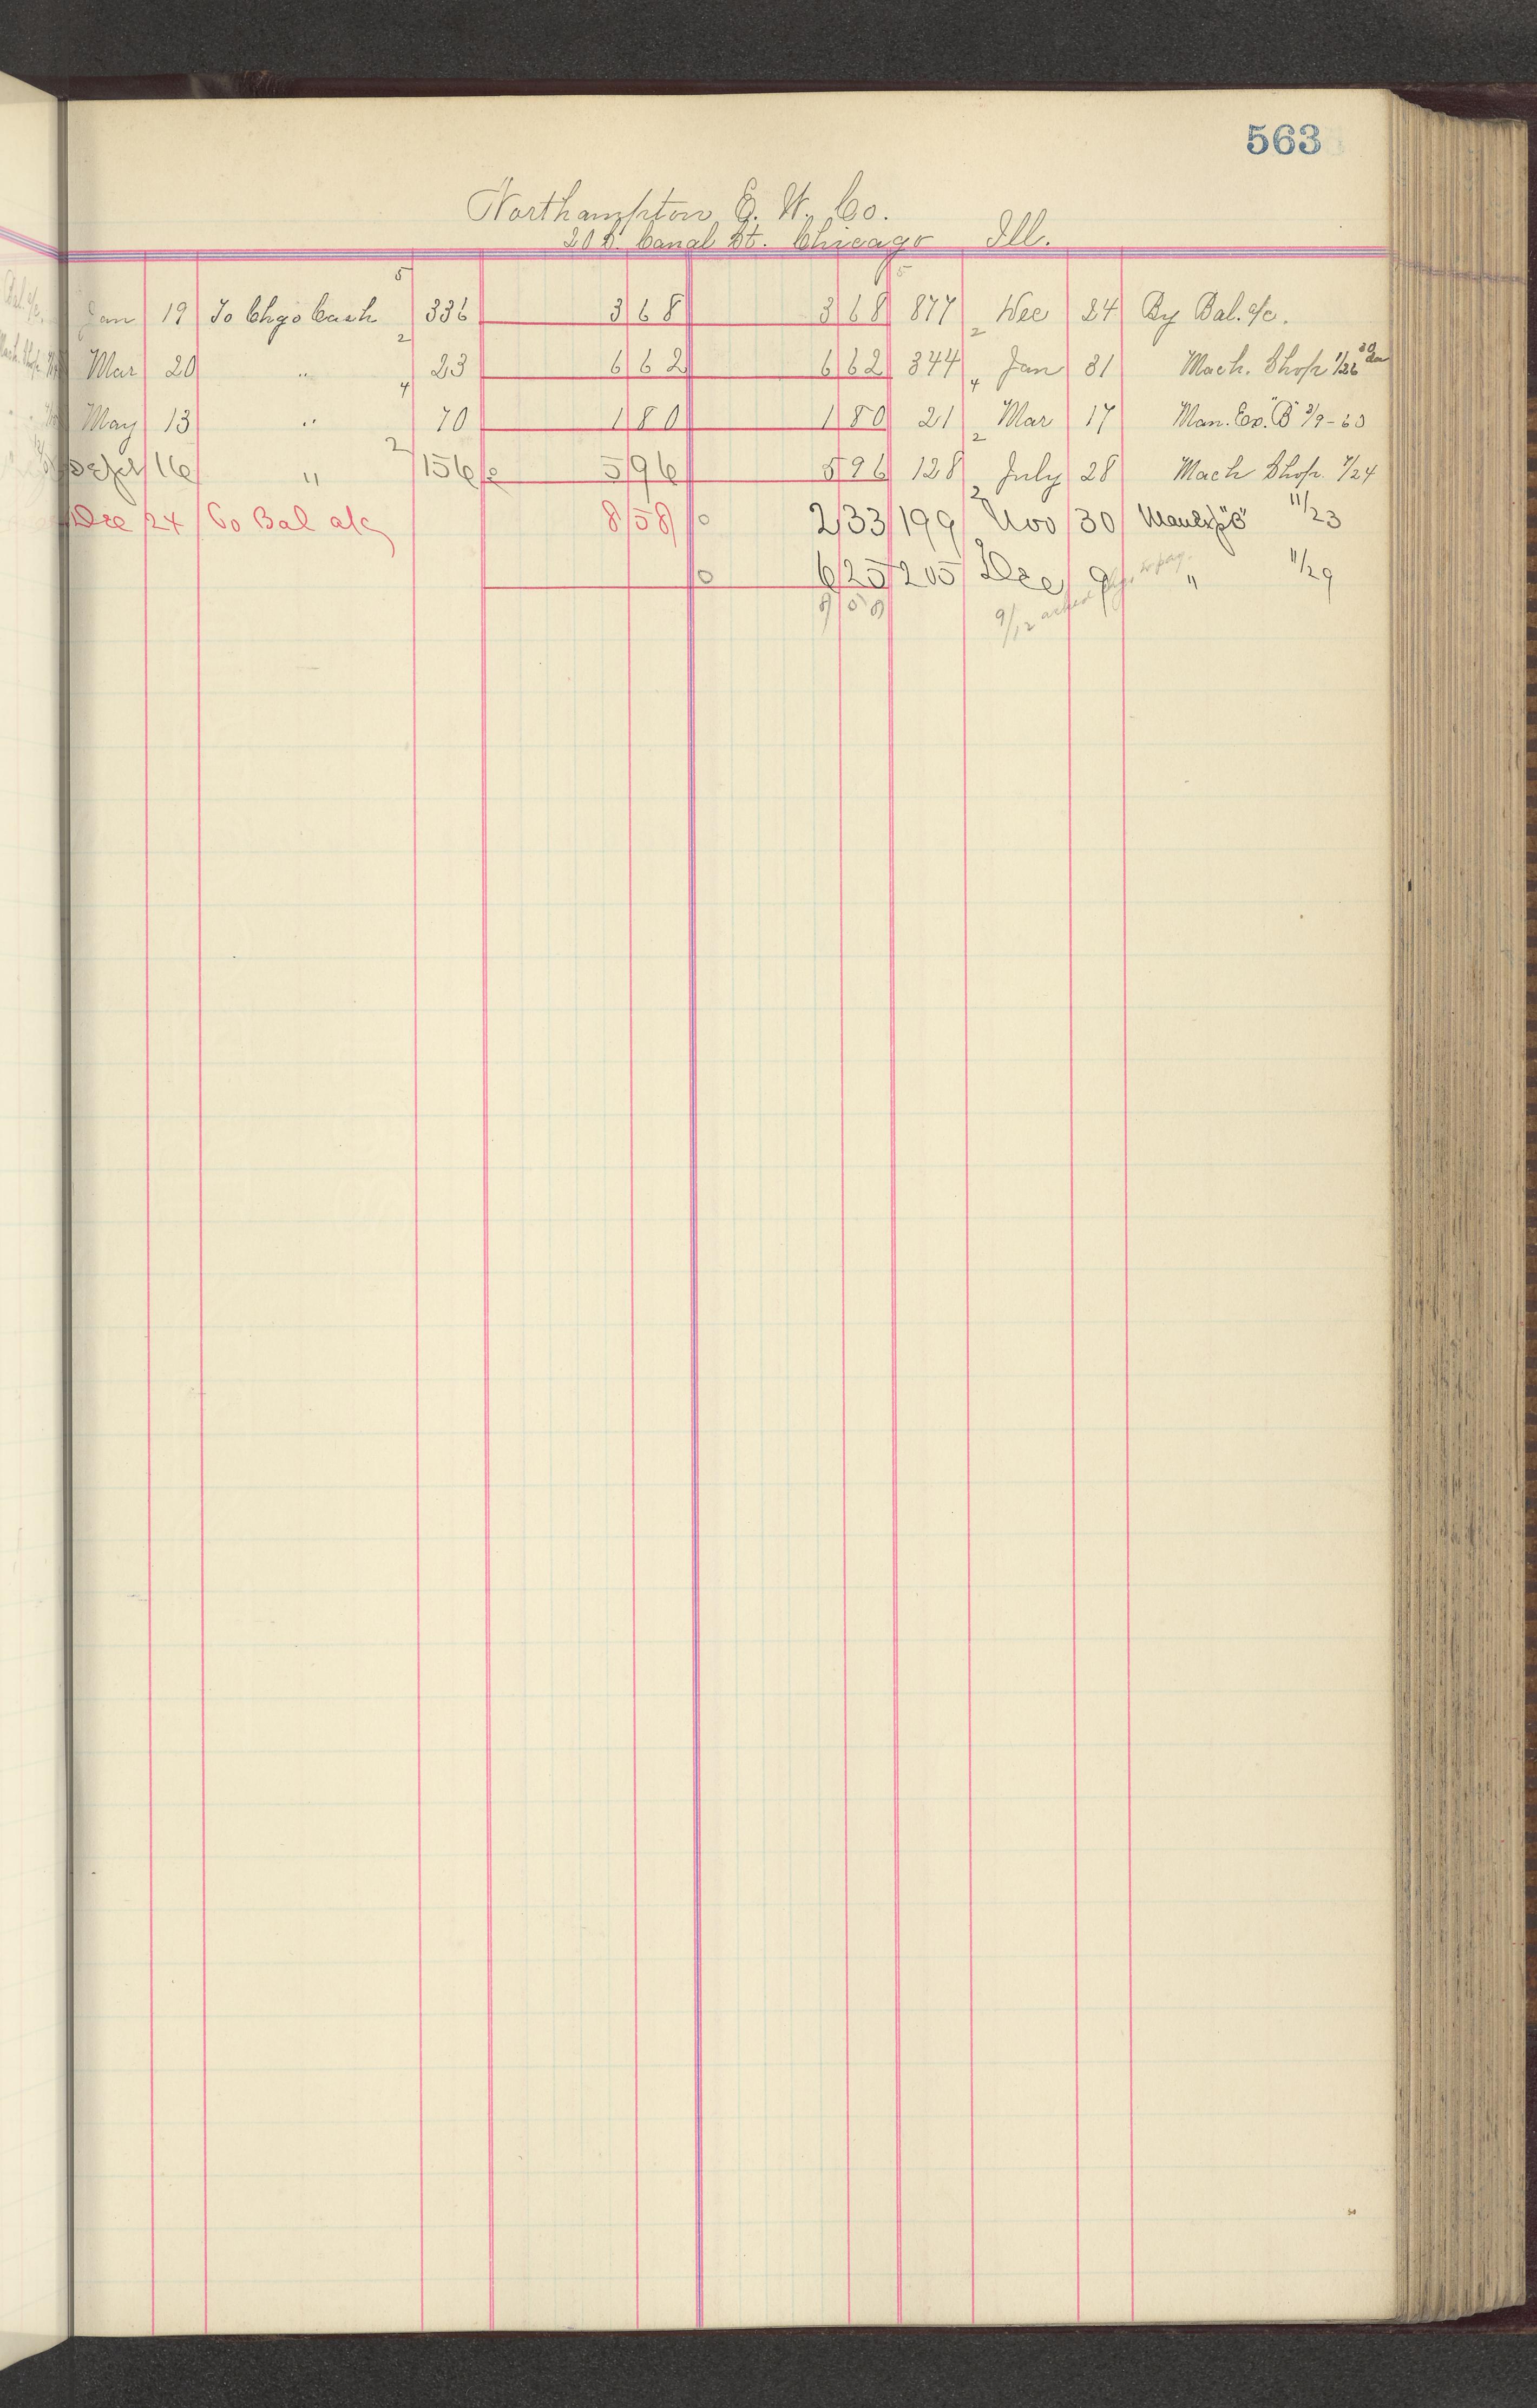 563
Northampton E. W. Co.
20 S. Canal St. Chicago Ill.
5 5
Jan 19 To Chgo Cash 336 3 68 3 68 877 Dec 24 By Bal. a/c.
2 2
Mar 20 " 23 6 62 6 62 344 Jan 31 Mach. Shop 1/26
4 4
May 13 " 70 1 80 1 80 21 Mar 17 Man. Ex. "B" 3/9-63
2 2
Sept 16 " 156 5 96 5 96 128 July 28 Mach Shop. 7/24
2
Dec 24 To Bal a/c 8 58 2 33 199 Nov 30 Man Exp "B" 11/23
6 25 205 Dec 9 " 11/29
8 58 9/12 asked to pay.